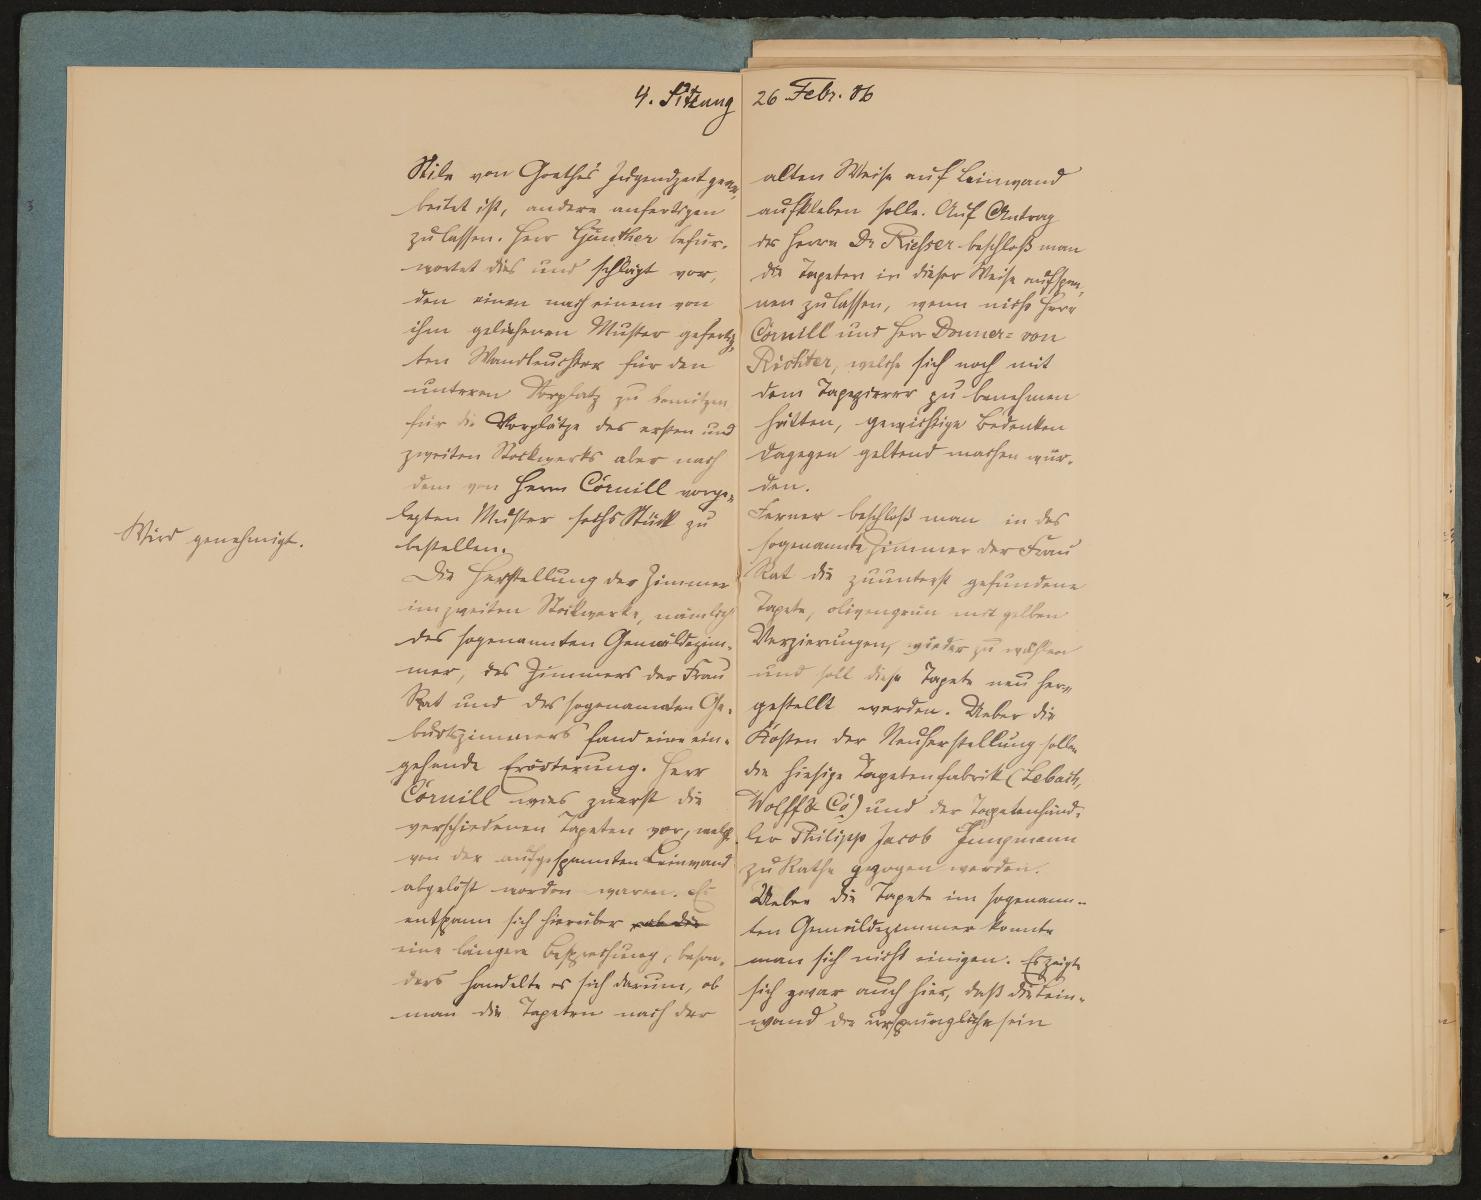 4. Sitzung
Stile von Goethes Jugendzeit gear-
beitet ist, andere anfertigen
zu lassen. Herr Günther befür-
wortet dies und schlägt vor,
den einen nach einem von
ihm geliehenen Muster gefertig-
ten Wandleuchter für den
unteren Vorplatz zu benützen,
für die Vorplätze des ersten und
zweiten Stockwerks aber nach
dem von Herrn Cornill vorge-
legten Muster sechs Stück zu
bestellen.
Wird genehmigt.
Die Herstellung der Zimmer
im zweiten Stockwerke, nämlich
des sogenannten Gemäldezim-
mer, des Zimmers der Frau
Rat und des sogenannten Ge-
burtszimmers fand eine ein-
gehende Erörterung. Herr
Cornill wies zuerst die
verschiedenen Tapeten vor, welche
von der aufgespannten Leinwand
abgelöst worden waren. Es
entspann sich hierüber ob die
eine längere Besprechung, beson-
ders handelte es sich darum, ob
man die Tapeten nach der
26 Febr. 86
alten Weise auf Leinwand
aufkleben solle. Auf Antrag
des Herrn Dr Riesser beschloß man
die Tapeten in dieser Weise aufspan-
nen zu lassen, wenn nicht Herr
Cornill und Herr Donner- von
Richter, welche sich noch mit
dem Tapezierer zu benehmen
hätten, gewichtige Bedenken
dagegen geltend machen wür-
den.
Ferner beschloß man in das
sogenannte Zimmer der Frau
Rat die zuunterst gefundene
Tapete, olivengrün mit gelben
Verzierungen, wieder zu wählen
und soll diese Tapete neu her-
gestellt werden. Ueber die
Kosten der Neuherstellung sollen
die hiesige Tapetenfabrik (
Wolff & Co) und der Tapetenhänd-
ler Philipp Jacob Jungmann
zu Rathe gezogen werden.
Ueber die Tapete im sogenann-
ten Gemäldezimmer konnte
man sich nicht einigen. Es zeigte
sich zwar auch hier, daß die Lein-
wand die ursprüngliche sein